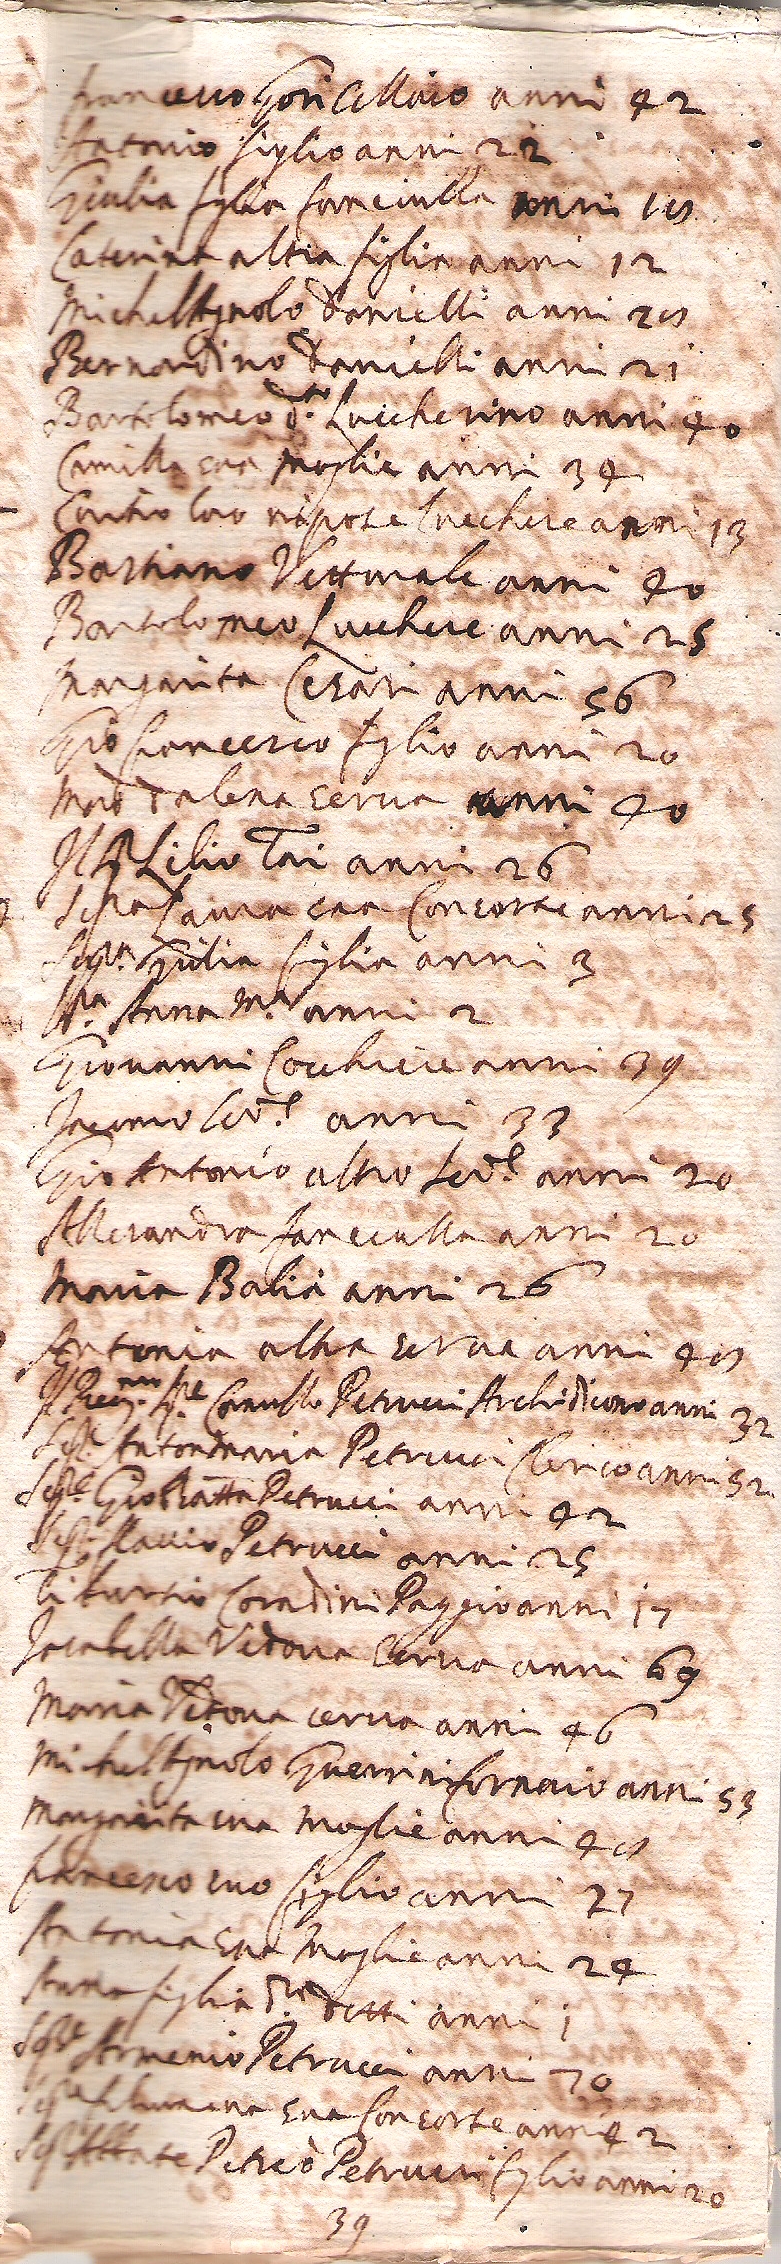 Francesco Gori Cellaio anni 42
Antonio figlio anni 22
Giulia figlia fanciulla anni 18
Caterina altra figlia anni 12
Michelagnolo Danielli anni 28
Bernardino Danielli anni 21
Bartolomeo d.º Luccherino anni 40
Camilla sua moglie anni 34
loro nipote Lucchese anni 13
Bastiano Vetturale anni 40
Bartolomeo Lucchese anni 25
Margarita Cesari anni 56
Gio Francesco figlio anni 20
Maddalena serva anni 40
Il Sr Lilio Tai anni 26
Sigra Laura sua Consorte anni 25
Sigra Giulia figlia anni 3
Sra Anna Ma anni 2
Giovanni Cocchiere anni 39
Jacomo Servre anni 33
Gio Antonio altro Servre anni 20
Allesandra fanciulla anni 20
Maria Balia anni 26
Antonia altra serva anni 48
Sre Camillo Petrucci Archidicono anni 32
Sigre Antonmaria Petrucci Clerico anni 52
Sigre Gio Batta Petrucci anni 42
Sigre Petrucci anni 25
Tiburtio Coradini Paggio anni 17
Isabella Vedova serva anni 69
Maria Vedova serva anni 46
Michelagnolo Guerrini fornaio anni 53
Margarita sua moglie anni 48
Francesco suo figlio anni 27
Antonia sua Moglie anni 24
Anna figlia di detti anni 1
Sigre Armenio Petrucci anni 70
sua Consorte anni 42
Petrucci figlio anni 20
39